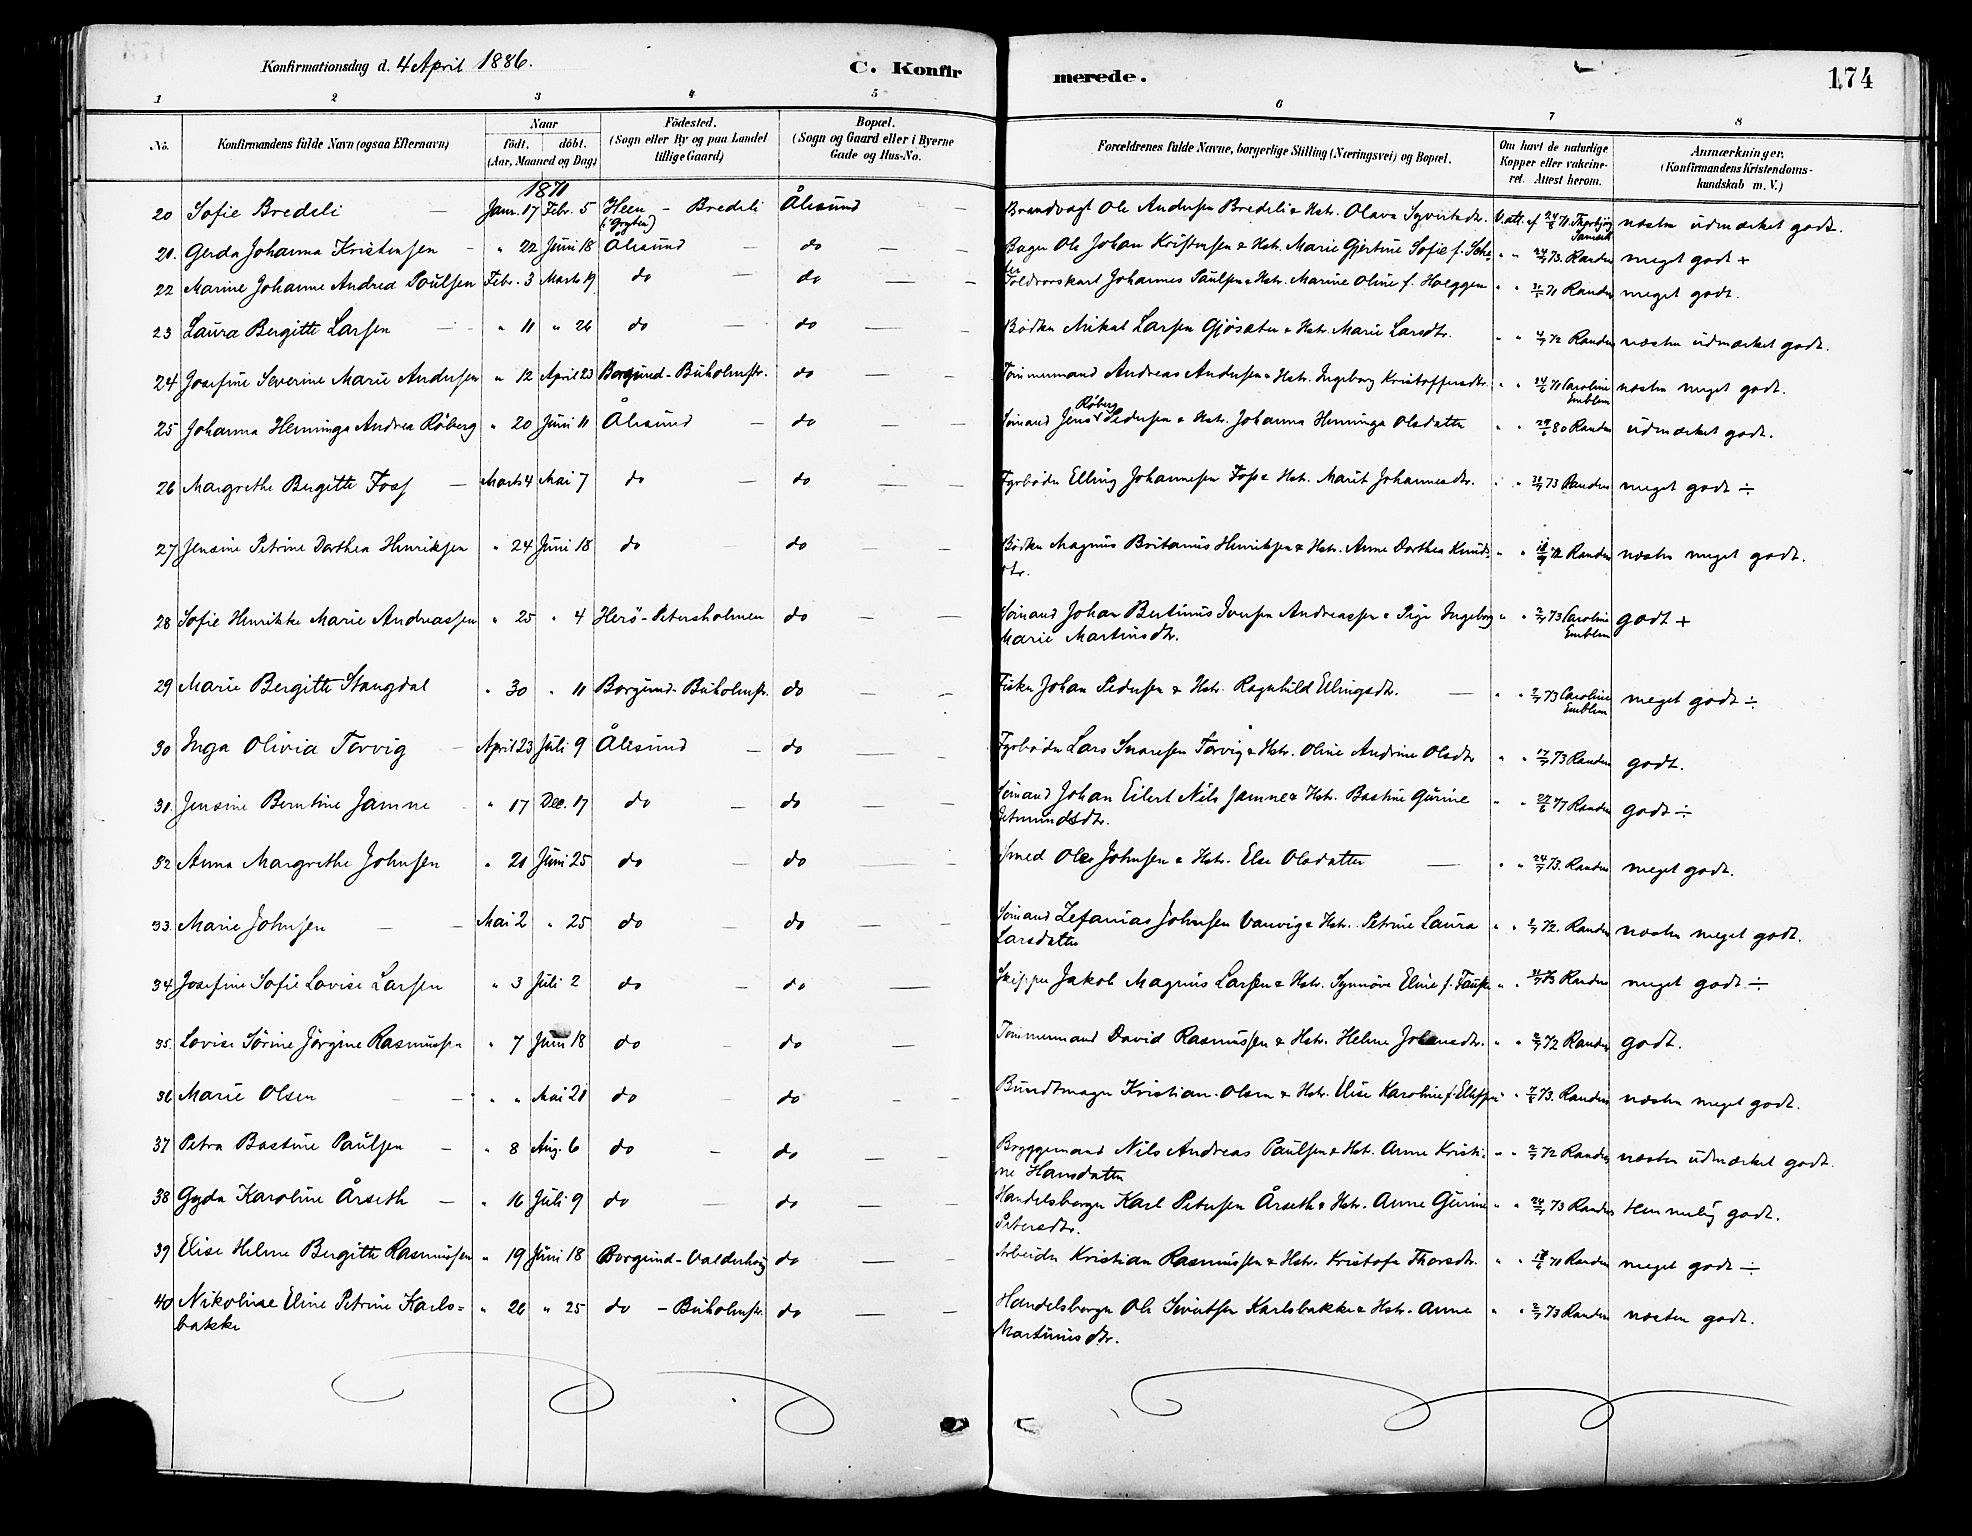 Konfirmationsdag d. 4 April 1886.
C. Konfirmerede.
174
1 2 3 4 5 6 7 8
No. Konfirmandens fulde Navn (ogsaa Efternavn) Naar födt. döbt. (Aar, Maaned og Dag) Födested. (Sogn eller By og paa Landet tillige Gaard) Bopæl. (Sogn og Gaard eller i Byerne Gade og Hus-No. Forældrenes fulde Navne, borgerlige Stilling (Næringsvei) og Bopæl. Om havt de naturlige Kopper eller vakcineret. Attest herom. Anmærkninger. (Konfirmandens Kristendomskundskab m. V.)
1871
20 Sofie Bredeli Janr. 17 Febr. 5 Heen (i Gryten) - Bredeli Ålesund Brandvagt Ole Andersen Bredeli & Hstr. Olava Syvertsdtr. V. att. af 24/6 71 næsten udmærket godt.
21. Gerda Johanna Kristensen " 22 Juni 18 Ålesund do Bager Ole Johan Kristensen & Hstr. Marie Gjertine Sofie f. " " 24/7 73. Randers meget godt +
22 Marine Johanne Andrea Poulsen Febr. 3 Marts 19 do do Toldroerskarl Johannes Paulsen & Hstr. Marine Oline f. Hoeggen " " 71 Randers meget godt.
23 Laura Bergitte Larsen " 11 " 26 do do Bødker Mikal Larsen Gjösæter & Hstr. Marie Larsdtr. " " 4/7 72 Randers næsten udmærket godt.
24 Josefine Severine Marie Andersen " 12 April 23 Borgund - Buholmstr. do Tömmermand Andreas Andersen & Hstr. Ingeborg Kristoffersdtr. " " 24/6 71 Caroline Emblem næsten meget godt.
25 Johanna Henninga Andrea Röberg " 20 Juni 11 Ålesund do Sömand Jens Röberg Pedersen & Hstr. Johanna Henninga Olsdatter " " 29/6 80 Randers udmærket godt.
26 Margrethe Bergitte Foss Marts 4 Mai 7 do do Fyrböder Elling Johannesen Foss & Hstr. Marit Johannesdtr. " " 73 Randers meget godt ÷
27 Jensine Petrine Dorthea Henriksen " 24 Juni 18 do do Bödker Magnus Britanus Henriksen & Hstr. Anne Dorthea Knuds-
dtr. " " 72 Randers næsten meget godt.
28 Sofie Henrikke Marie Andreassen " 25 " 4 Herö - Petersholmen do Sömand Johan Bertinus Iversen Andreassen & Pige Ingeborg
Marie Martinsdtr. " " 2/7 73 Caroline Emblem godt +
29 Marie Bergitte Stangdal " 30 " 11 Borgund - Buholmstr. do Fisker Johan Pedersen & Hstr. Ragnhild Ellingsdtr. " " 2/7 73 Caroline Emblem meget godt ÷
30 Inga Olivia Torvig April 23 Juli 9 Ålesund do Fyrböder Lars Torvig & Hstr. Oline Andrine Olsdtr " " 17/7 73 Randers godt.
31. Jensine Berntine Jamne " 17 Dec. 17 do do Sömand Johan Eilert Nils Jamne & Hstr. Bastine Gurine
" " 27/6 77 Randers godt ÷
32 Anna Margrethe Johnsen " 21 Juni 25 do do Smed Ole Johnsen & Hstr. Else Olsdatter " " 24/7 73. Randers meget godt.
33. Marie Johnsen Mai 2 " 25 do do Sömand Zefanias Johnsen Vanvig & Hstr. Petrine Laura
Larsdatter " " 72. Randers næsten meget godt.
34 Josefine Sofie Lovise Larsen " 3 Juli 2 do do Skipper Jakob Magnus Larsen & Hstr. Synnöve Eline f. " " 73 Randers meget godt ÷
35. Lovise Sörine Jörgine Rasmussen " 7 Juni 18 do do Tömmermand David Rasmussen & Hstr. Helene Johansdtr. " " 72 Randers godt.
36 Marie Olsen " " Mai 21 do do Bundtmager Kristian Olsen & Hstr. Elise Karoline f. " 73. Randers næsten meget godt.
37 Petra Bastine Paulsen " 8 Aug. 6 do do Bryggemand Nils Andreas Paulsen & Hstr. Anne Kristi-
ne Hansdatter " " 2/7 72 Randers næsten udmærket godt.
38 Gyda Karoline Årseth " 16 Juli 9 do do Handelsborger Karl Petersen Årseth & Hstr. Anne Gurine
Petersdtr. " " 24/7 73 Randers temmelig godt.
39 Elise Helene Bergitte Rasmussen " 19 Juni 18 Borgund - Valderhoug do Arbeider Kristian Rasmussen & Hstr. Kristofa Thorsdtr. " " 71 Randers meget godt ÷
40 Nikoline Eline Petrine Karls-
bakke " 26 " 25 do - Buholmstr. do Handelsborger Ole Sivertsen Karlsbakke & Hstr. Anne
Martinusdtr. " " 2/7 73 Randers næsten godt.